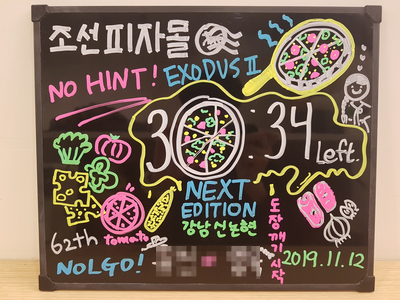 조선피자몰
NO HINT! EXODUS II
30:34 Left.
NEXT
EDITION
강남 신논현
62th tomato
NOLGO!
도장깨기 시작
2019.11.12